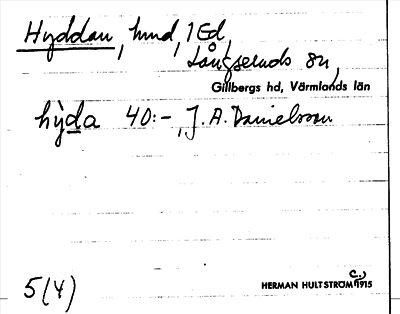 Hyddan, hmd, 1 Ed,
Långseruds sn,
Gillbergs hd, Värmlands län
hỳda 40:-, J. A. Danielsson
5(4)
HERMAN HULTSTRÖM C:a 1915